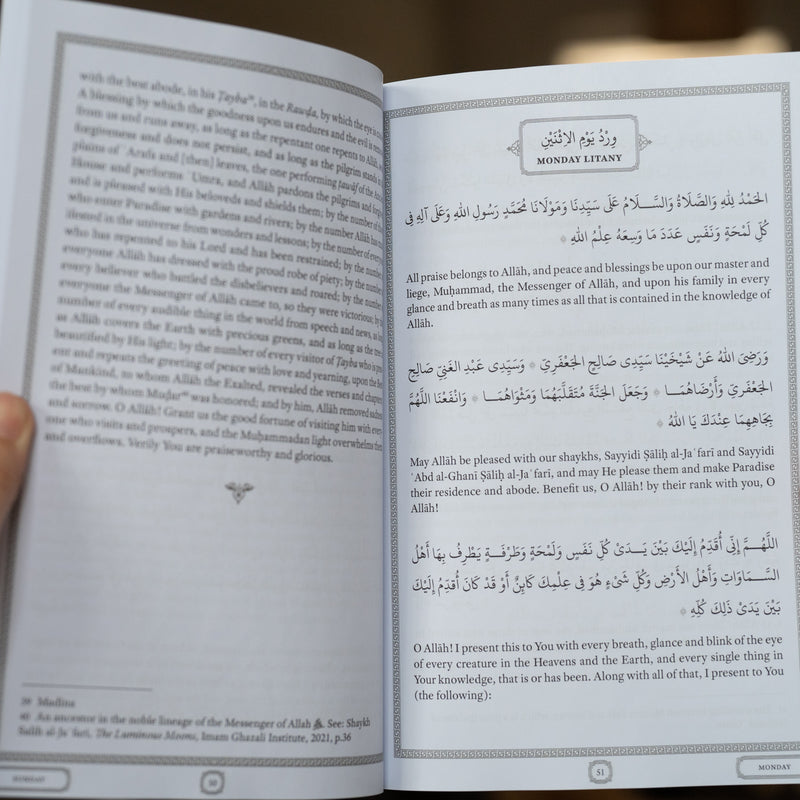 with the best abode, in his Ṭayba³⁹, in the Rawḍa, by which the eye is
A blessing by which the goodness upon us endures and the evil is
from us and runs away, as long as the repentant one repents to Allāh,
forgiveness and does not persist, and as long as the pilgrim stands
plains of ʿArafa and [then] leaves, the one performing ṭawāf of the
House and performs ʿUmra, and Allāh pardons the pilgrims and
and is pleased with His beloveds and shields them; by the number
who enter Paradise with gardens and rivers; by the number Allāh has
in the universe from wonders and lessons; by the number of every
who has repented to his Lord and has been restrained; by the number
everyone Allāh has dressed with the proud robe of piety; by the number
every believer who battled the disbelievers and roared; by the number
everyone the Messenger of Allāh came to, so they were victorious; by
number of every audible thing in the world from speech and news, as
as Allāh covers the Earth with precious greens, and as long as the
beautified by His light; by the number of every visitor of Ṭayba who is
and repeats the greeting of peace with love and yearning, upon the
of Mankind, to whom Allāh the Exalted, revealed the verses and
the best by whom Muḍar⁴⁰ was honored; and by him, Allāh removed
and sorrow. O Allāh! Grant us the good fortune of visiting him with
one who visits and prospers, and the Muḥammadan light overwhelms
and overflows. Verily You are praiseworthy and glorious.
39 Madīna
40 An ancestor in the noble lineage of the Messenger of Allah ﷺ. See: Shaykh
Ṣāliḥ al-Jaʿfarī, The Luminous Moons, Imam Ghazali Institute, 2021, p.36
50
وِرْدُ يَوْمِ الاِثْنَيْنِ
MONDAY LITANY
الحَمْدُ لِلهِ وَالصَّلَاةُ وَالسَّلَامُ عَلَى سَيِّدِنَا وَمَوْلَانَا مُحَمَّدٍ رَسُولِ اللهِ وَعَلَى آلِهِ فِى
كُلِّ لَمْحَةٍ وَنَفَسٍ عَدَدَ مَا وَسِعَهُ عِلْمُ اللهِ
All praise belongs to Allāh, and peace and blessings be upon our master and
liege, Muḥammad, the Messenger of Allāh, and upon his family in every
glance and breath as many times as all that is contained in the knowledge of
Allāh.
وَرَضِىَ اللهُ عَنْ شَيْخَيْنَا سَيِّدِى صَالِحٍ الجَعْفَرِيِّ * وَسَيِّدِى عَبْدِ الغَنِيِّ صَالِحٍ
الجَعْفَرِيِّ وَأَرْضَاهُمَا * وَجَعَلَ الجَنَّةَ مُتَقَلَّبَهُمَا وَمَثْوَاهُمَا * وَانْفَعْنَا اللَّهُمَّ
بِجَاهِهِمَا عِنْدَكَ يَا اللهُ
May Allāh be pleased with our shaykhs, Sayyidi Ṣāliḥ al-Jaʿfarī and Sayyidi
ʿAbd al-Ghanī Ṣāliḥ al-Jaʿfarī, and may He please them and make Paradise
their residence and abode. Benefit us, O Allāh! by their rank with you, O
Allāh!
اللَّهُمَّ إِنِّى أُقَدِّمُ إِلَيْكَ بَيْنَ يَدَىْ كُلِّ نَفَسٍ وَلَمْحَةٍ وَطَرْفَةٍ يَطْرِفُ بِهَا أَهْلُ
السَّمَاوَاتِ وَأَهْلُ الأَرْضِ وَكُلِّ شَىْءٍ هُوَ فِى عِلْمِكَ كَائِنٌ أَوْ قَدْ كَانَ أُقَدِّمُ إِلَيْكَ
بَيْنَ يَدَىْ ذَلِكَ كُلِّهِ
O Allāh! I present this to You with every breath, glance and blink of the eye
of every creature in the Heavens and the Earth, and every single thing in
Your knowledge, that is or has been. Along with all of that, I present to You
(the following):
51
MONDAY